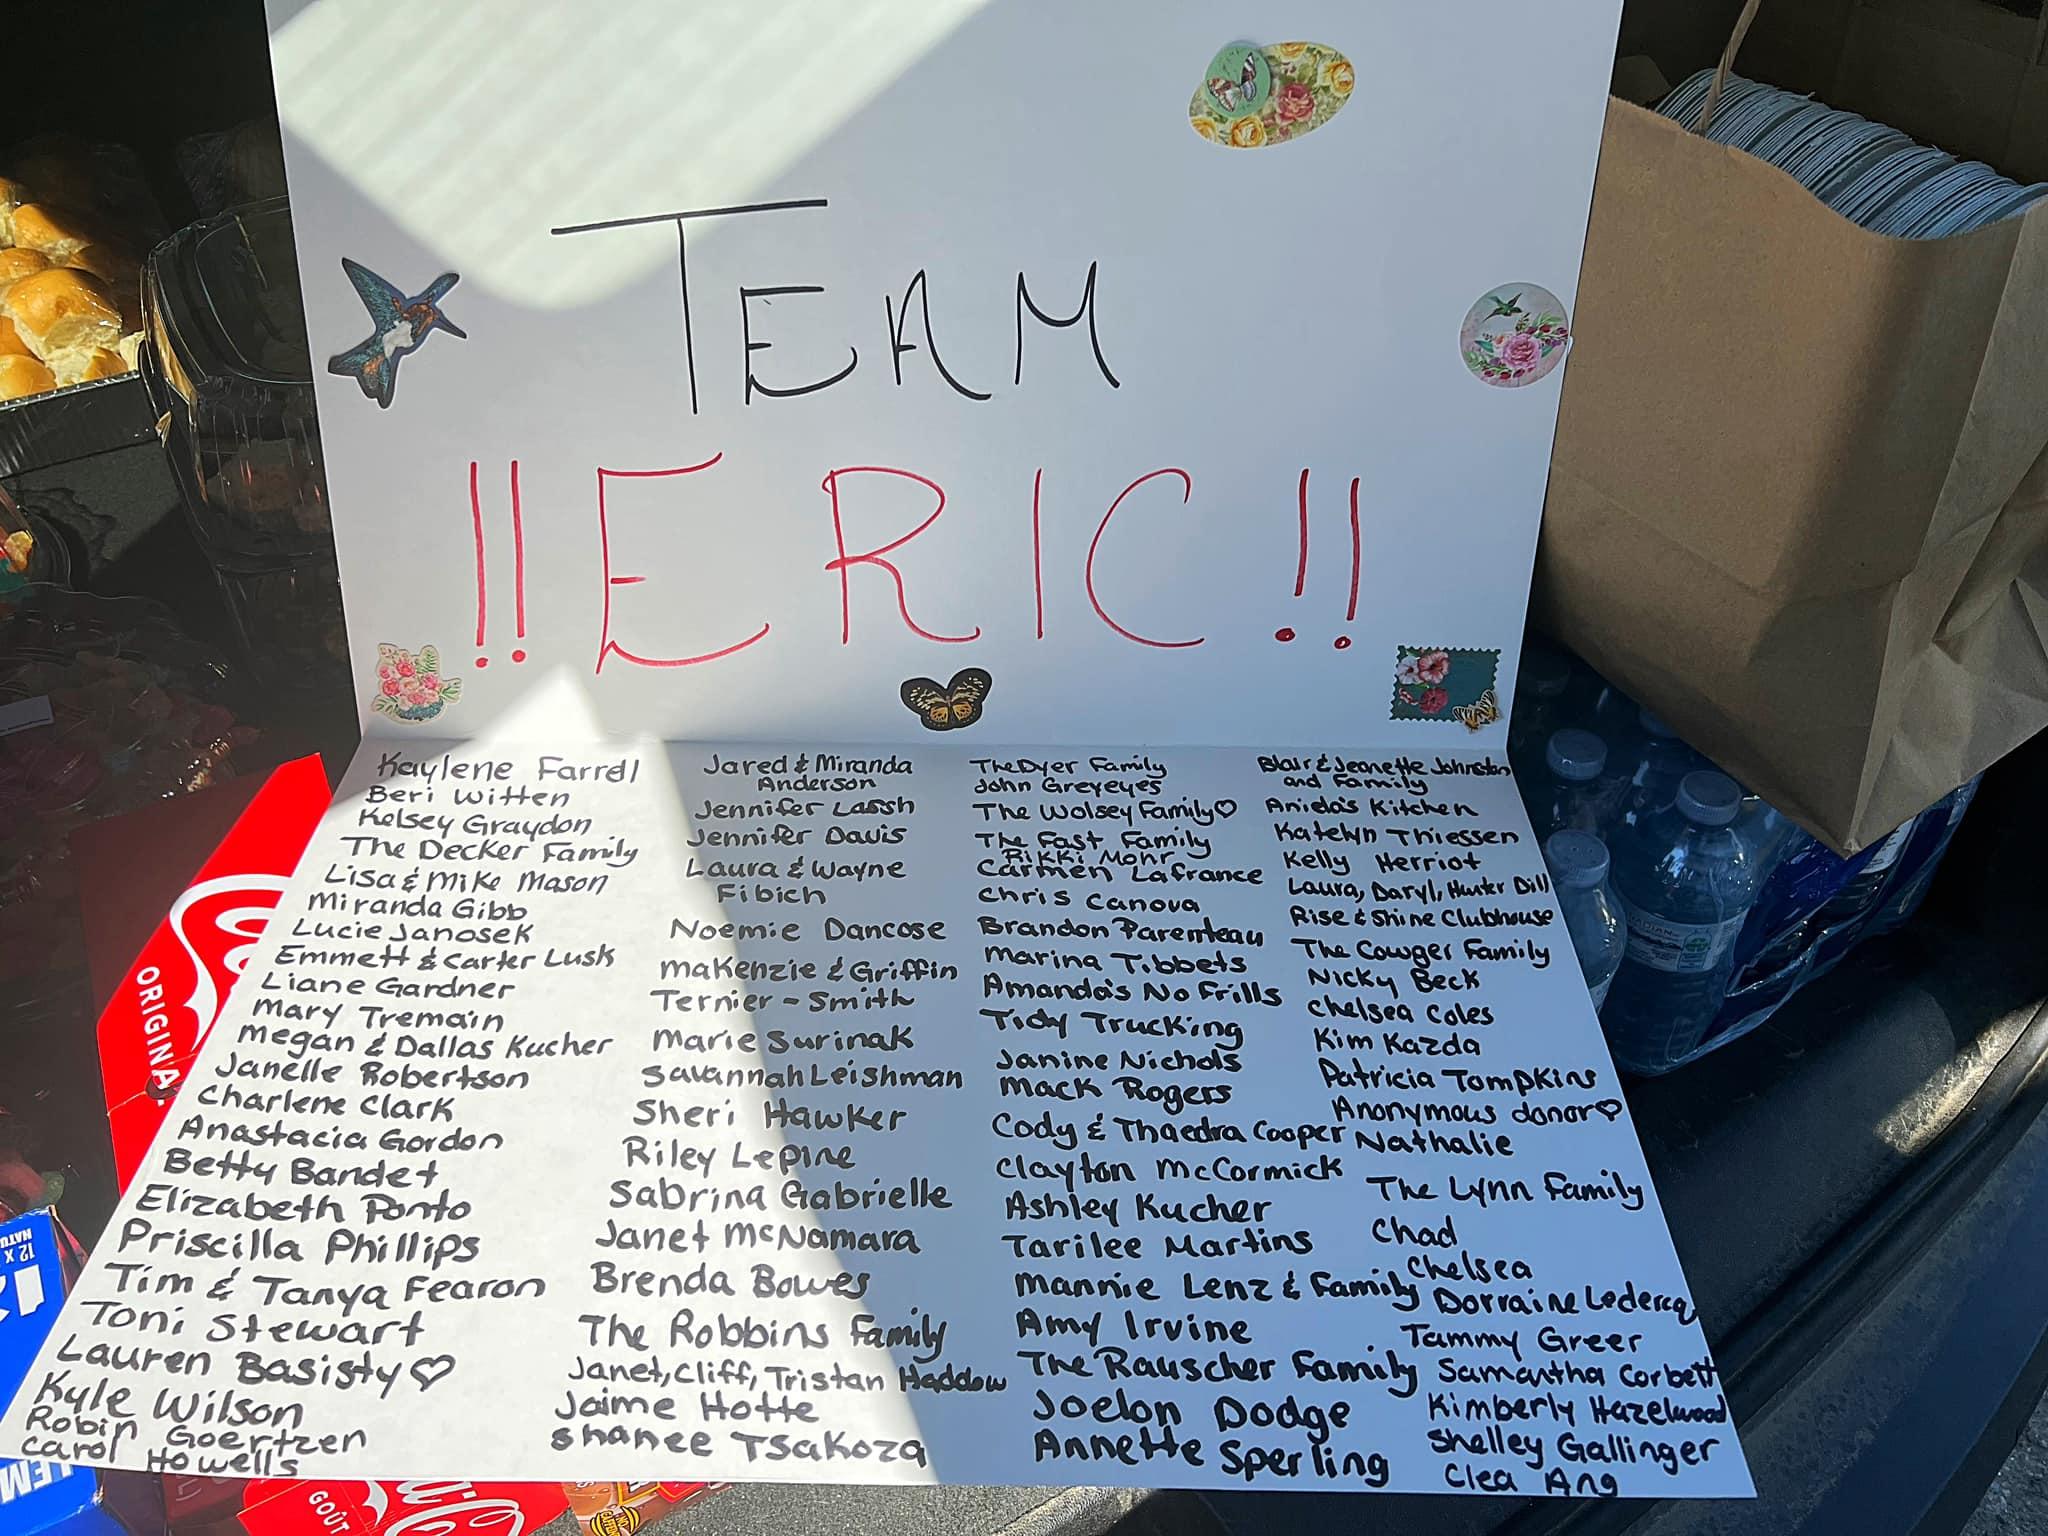 TEAM
!! ERIC !!
Kaylene Farrell
Beri Witten
Kelsey Graydon
The Decker Family
Lisa & Mike Mason
Miranda Gibb
Lucie Janosek
Emmett & Carter Lusk
Liane Gardner
Mary Tremain
Megan & Dallas Kucher
Janelle Robertson
Charlene Clark
Anastacia Gordon
Betty Bandet
Elizabeth Ponto
Priscilla Phillips
Tim & Tanya Fearon
Toni Stewart
Lauren Basisty ♡
Kyle Wilson
Robin Goertzen
Carol Howells
Jared & Miranda
Anderson
Jennifer Lassh
Jennifer Davis
Laura & Wayne
Fibich
Noemie Dancose
Makenzie & Griffin
Ternier-Smith
Marie Surinak
Savannah Leishman
Sheri Hawker
Riley Lepine
Sabrina Gabrielle
Janet McNamara
Brenda Bowes
The Robbins Family
Janet, Cliff, Tristan Haddow
Jaime Hotte
Shanee Tsakoza
The Dyer Family
John Greyeyes
The Wolsey Family ♡
The Fast Family
Rikki Mohr
Carmen Lafrance
Chris Canova
Brandon Parenteau
Marina Tibbets
Amanda's No Frills
Tidy Trucking
Janine Nichols
Mack Rogers
Cody & Thaedra Cooper
Clayton McCormick
Ashley Kucher
Tarilee Martins
Mannie Lenz & Family
Amy Irvine
The Rauscher Family
Joelon Dodge
Annette Sperling
Blair & Jeanette Johnston
and Family
Aniela's Kitchen
Katelyn Thiessen
Kelly Herriot
Laura, Daryl, Hunter Dill
Rise & Shine Clubhouse
The Cowger Family
Nicky Beck
Chelsea Coles
Kim Kazda
Patricia Tompkins
Anonymous donor ♡
Nathalie
The Lynn Family
Chad
Chelsea
Dorraine Ledercq
Tammy Greer
Samantha Corbett
Kimberly Hazelwood
Shelley Gallinger
Clea Ang
ORIGINA
12 X
NATU
LEM
GOÛT